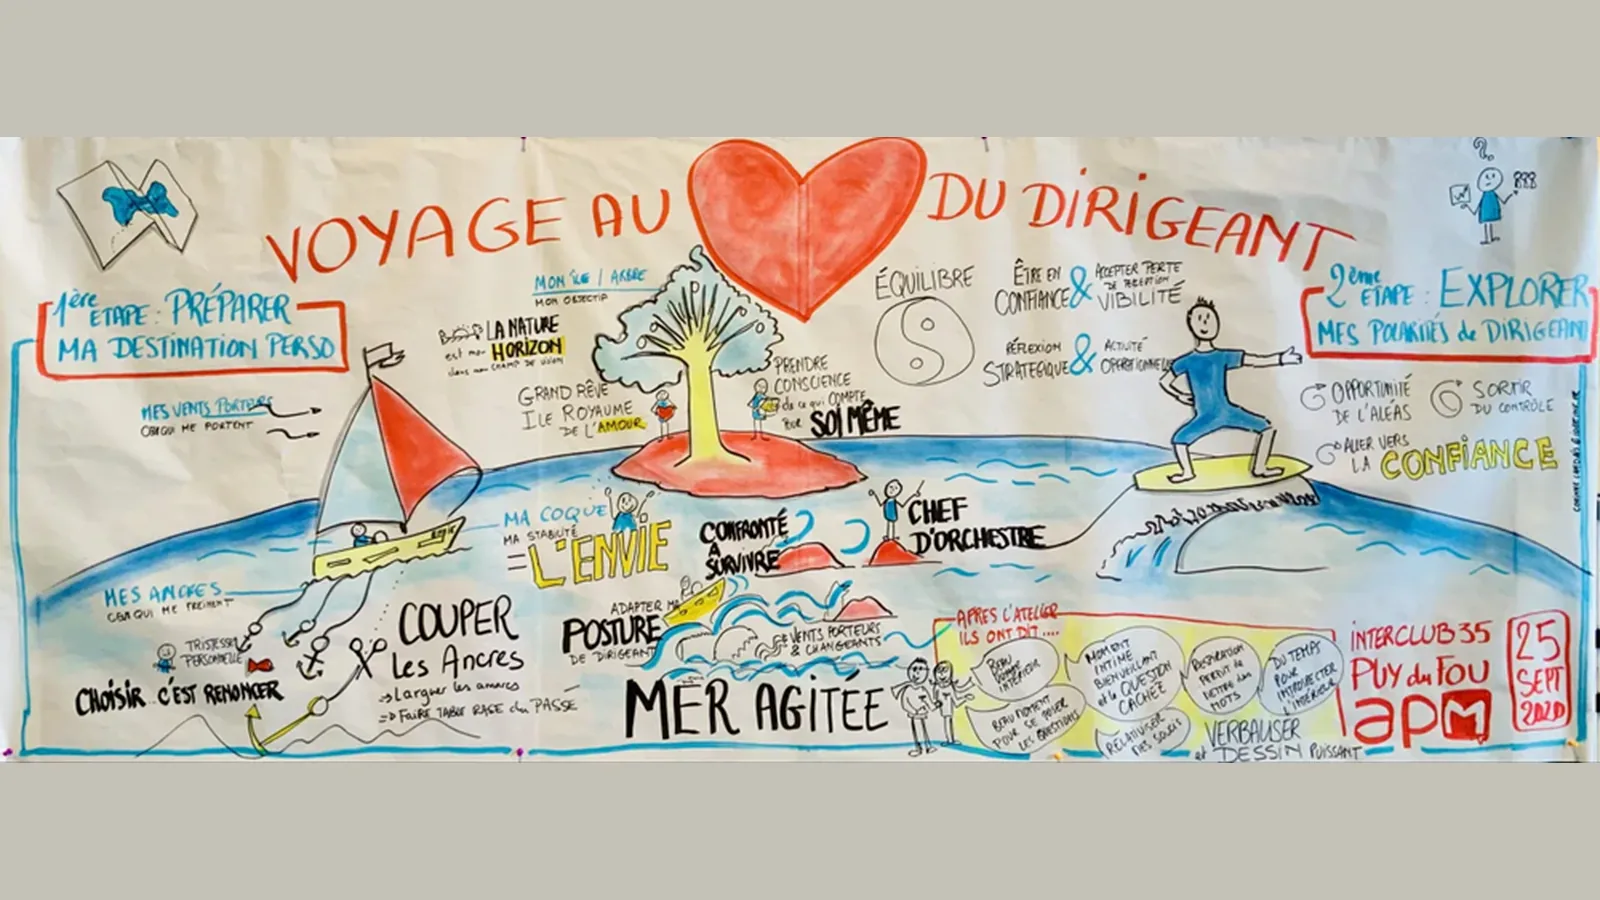 VOYAGE AU
DU DIRIGEANT
1ère
ETAPE : PRÉPARER
MA DESTINATION PERSO
MES VENTS PORTEURS
CEUX QUI ME PORTENT
MON ÎLE / ARBRE
MON OBJECTIF
LA NATURE
est mon HORIZON
dans mon CHAMP DE VISION
GRAND RÊVE
ILE ROYAUME
DE L'AMOUR
PRENDRE
CONSCIENCE
de ce qui COMPTE
POUR SOI MÊME
ÉQUILIBRE
ÊTRE EN
CONFIANCE
&
ACCEPTER PERTE
VIBILITÉ
RÉFLEXION
STRATEGIQUE
&
ACTIVITÉ
OPERATIONNELLE
2ème
ETAPE : EXPLORER
MES POLARITÉS de DIRIGEANT
OPPORTUNITÉ
DE L'ALÉAS
SORTIR
DU CONTRÔLE
ALLER VERS
LA CONFIANCE
MA COQUE
MA STABILITÉ
= L'ENVIE
CONFRONTÉ
À
SURVIVRE
CHEF
D'ORCHESTRE
MES ANCRES
CEUX QUI ME FREINENT
TRISTESSE
PERSONNELLE
CHOISIR C'EST RENONCER
COUPER
les Ancres
=> Larguer les amarres
=> FAIRE TABLE RASE du PASSÉ
ADAPTER MA
POSTURE
DE DIRIGEANT
VENTS PORTEURS
& CHANGEANTS
MER AGITÉE
APRÈS L'ATELIER
ILS ONT DIT ....
BEAU
VOYAGE
INTÉRIEUR
BEAU MOMENT
POUR SE POSER
LES QUESTIONS
MOMENT
INTIME
BIENVEILLANT
et la QUESTION
CACHÉE
RELATIVISER
MES SOUCIS
RESPIRATION
PERMET de
METTRE des
MOTS
DU TEMPS
POUR
INTROSPECTER
L'INTÉRIEUR
VERBALISER
et DESSIN PUISSANT
INTERCLUB 35
PUY du FOU
apm
25
SEPT
2020